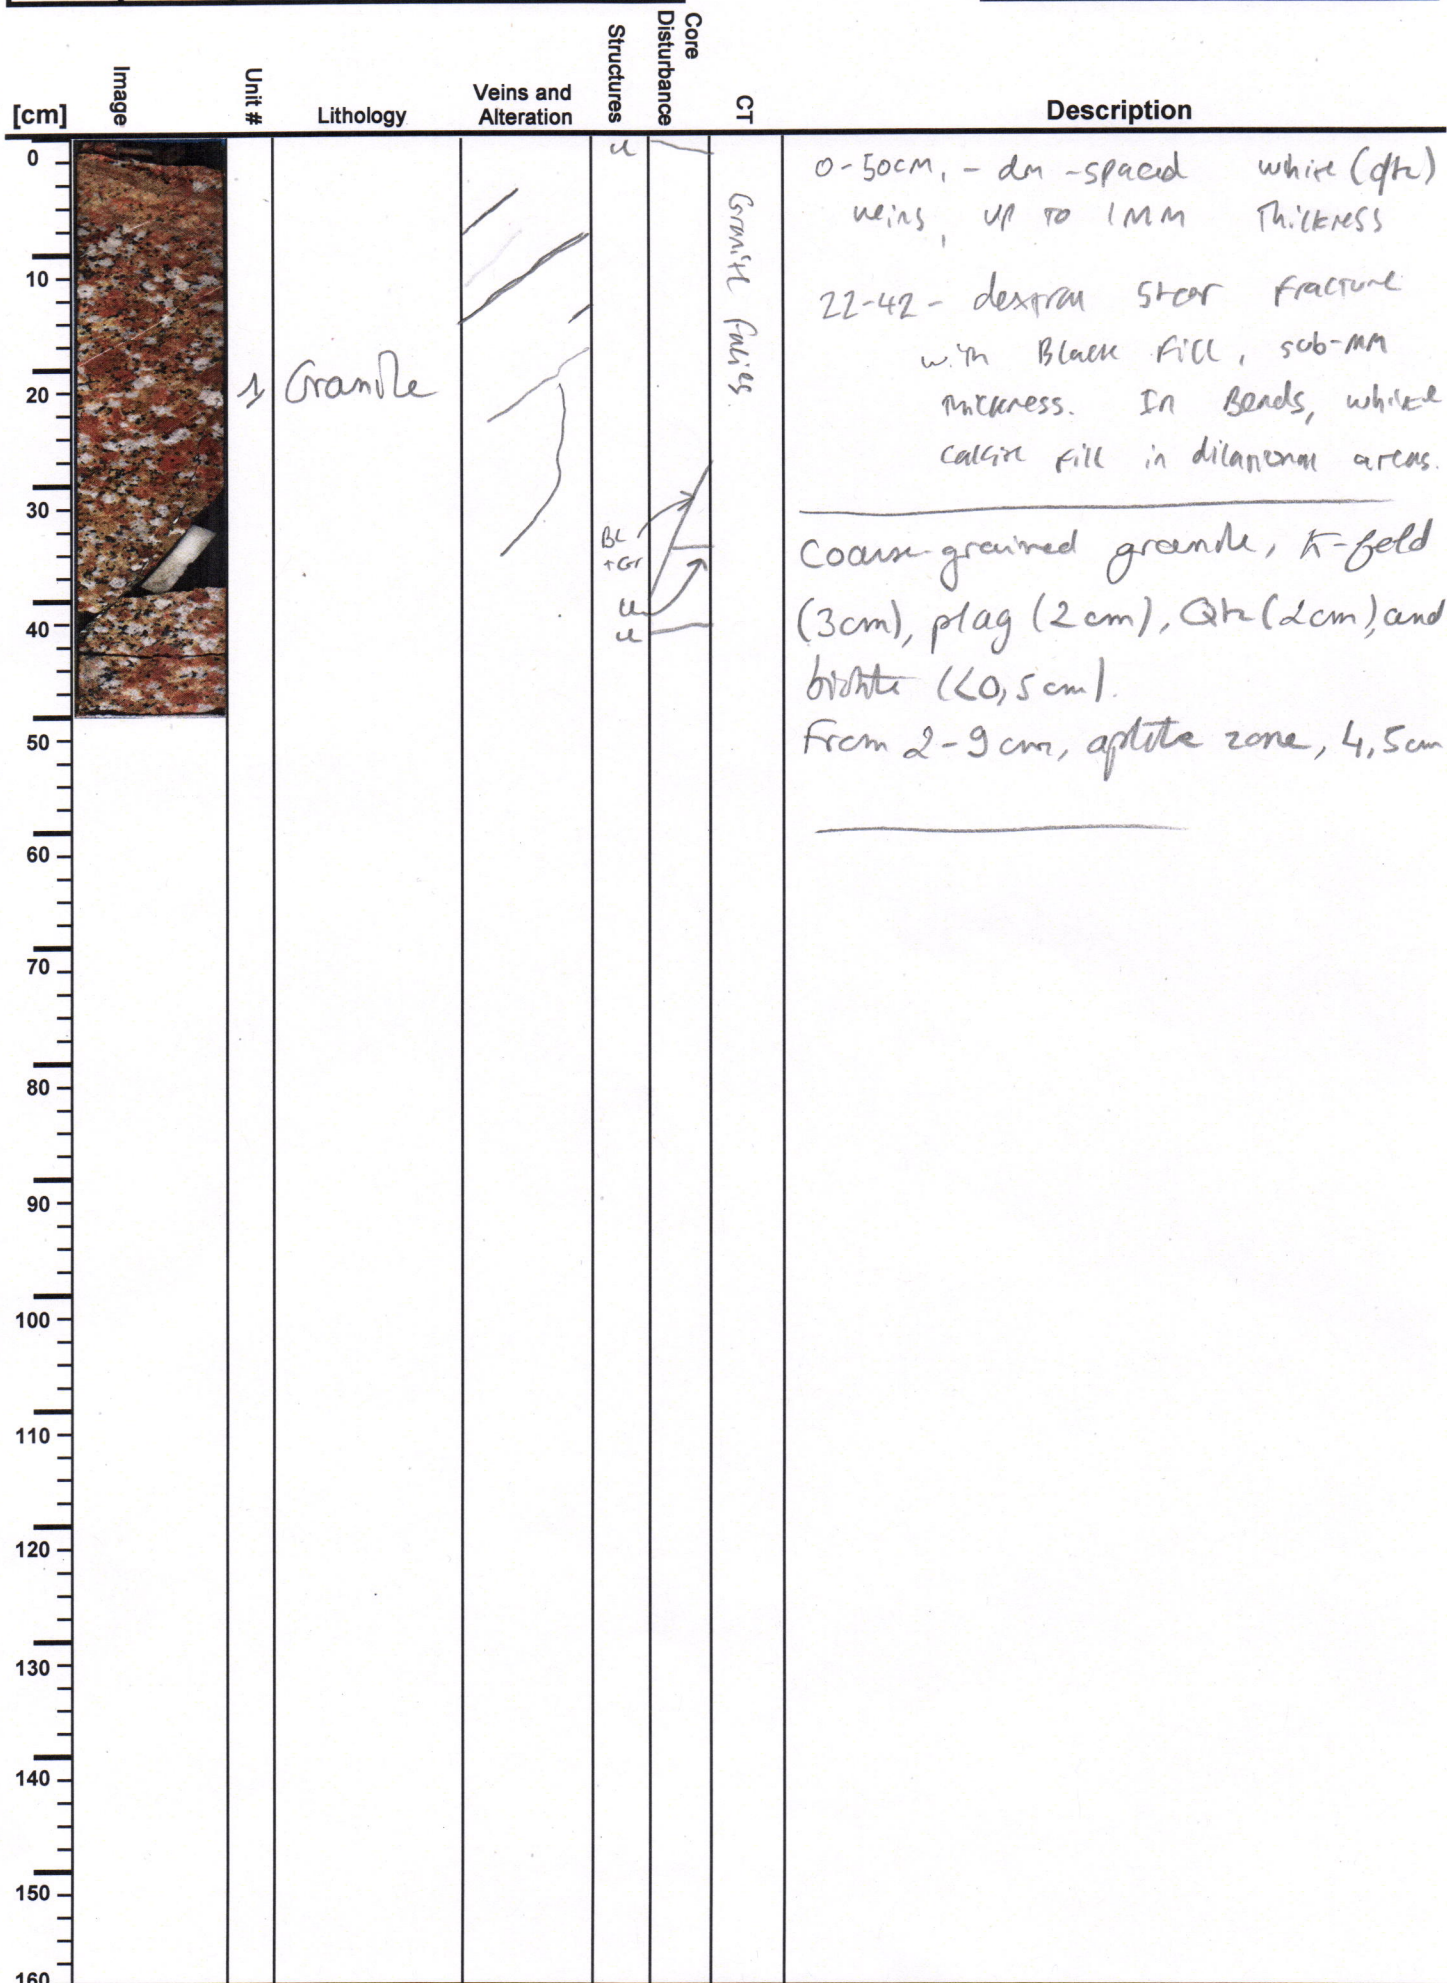 [cm]
Image
Unit #
Lithology
Veins and
Alteration
Structures
Core
Disturbance
CT
Description
0
10
20
30
40
50
60
70
80
90
100
110
120
130
140
150
160
1
Granite
u
BL
+Gr
u
u
Granite facies.
0-50cm, - dm -spaced white (qtz)
veins, up to 1mm Thickness
22-42 - dextral shear fracture
with Black Fill, sub-mm
thickness. In Bends, white
calcite fill in dilational areas.
Coarse-grained granite, K-feld
(3cm), plag (2 cm), Qtz (2cm), and
biotite (<0,5 cm).
From 2-9 cm, aplite zone, 4,5cm